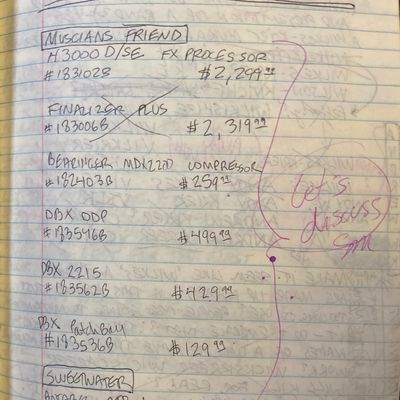 MUSCIANS FRIEND
H3000 D/SE FX PROCESSOR
#183102B $2,299.99
FINALIZER PLUS
#183006B $2,319.99
BEHRINGER MDX2200 COMPRESSOR
#182403B $259.99
DBX DDP
#183546B $499.99
DBX 2215
#183562B $429.99
DBX PatchBay
#183536B $129.99
SWEETWATER
Let's
discuss